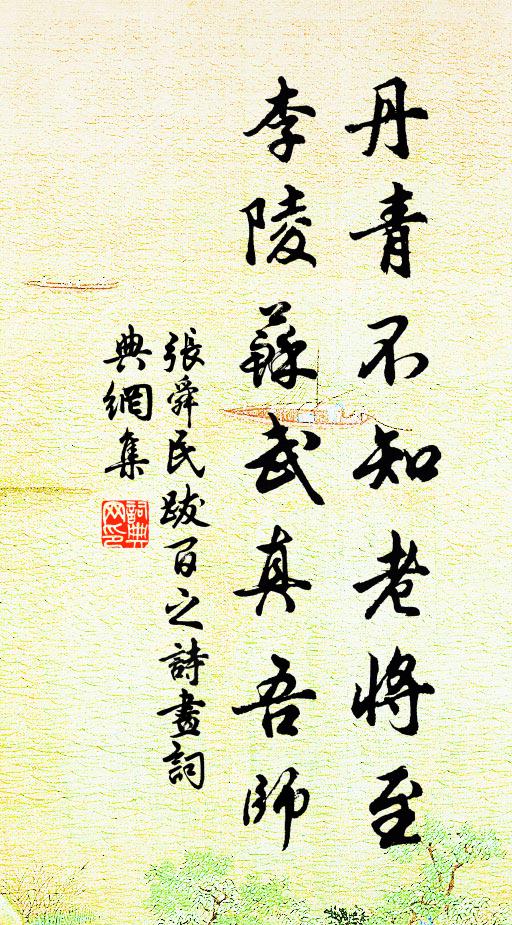 丹青不知老將至
李陵蘇武真吾師
張舜民跋百之詩畫詞
典網集
詞典
网印